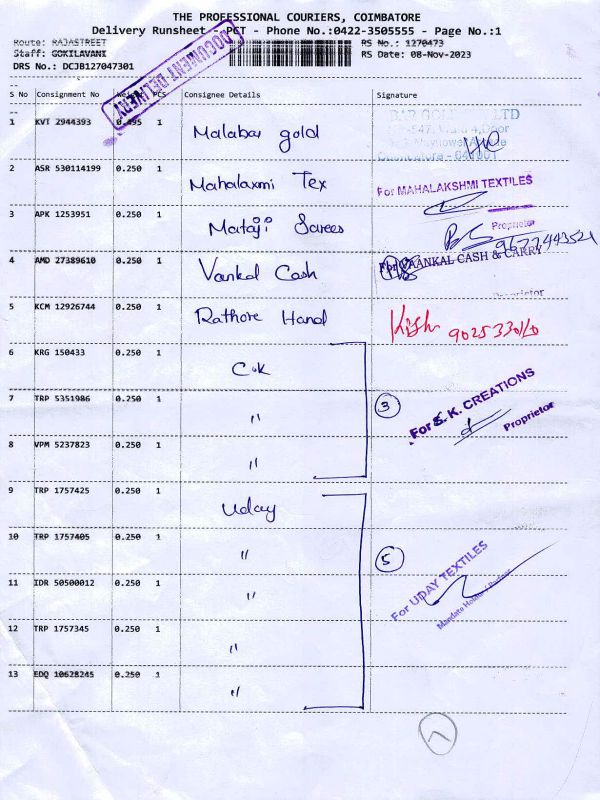 THE PROFESSIONAL COURIERS, COIMBATORE
Delivery Runsheet - PCT - Phone No.:0422-3505555 - Page No.:1
Route: RAJASTREET RS No.: 1270473
Staff: GOKILAVANI RS Date: 08-Nov-2023
DRS No.: DCJB127047301
DOCUMENT DELIVERY
S No Consignment No Weight PCS Consignee Details Signature
1 KVT 2944393 0.495 1 Malabar gold
COIMBATORE - 641001
2 ASR 530114199 0.250 1 Mahalaxmi Tex For MAHALAKSHMI TEXTILES
Proprietor
3 APK 1253951 0.250 1 Mataji Sarees
4 AMD 27389610 0.250 1 Vankal Cash For VAANKAL CASH & CARRY
Proprietor
5 KCM 12926744 0.250 1 Rathore Hand
6 KRG 150433 0.250 1
7 TRP 5351986 0.250 1 " 3 For S. K. CREATIONS
Proprietor
8 VPM 5237823 0.250 1 "
9 TRP 1757425 0.250 1 Uday
10 TRP 1757405 0.250 1 " 5
11 IDR 50500012 0.250 1 " For UDAY TEXTILES
12 TRP 1757345 0.250 1 "
13 EDQ 10628245 0.250 1 "